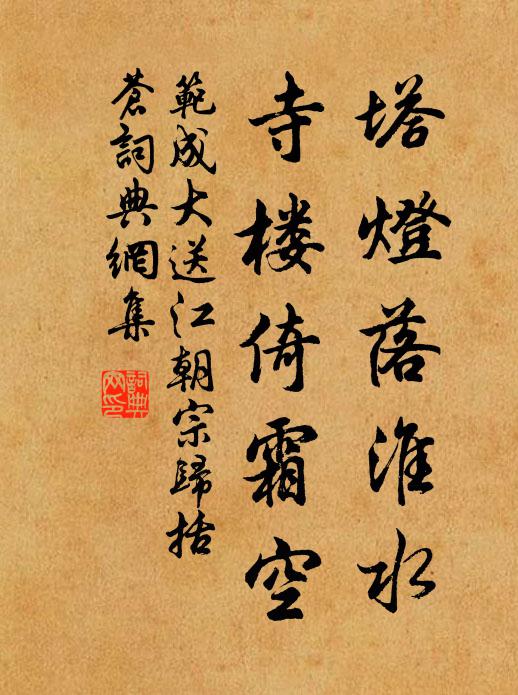 塔燈落淮水
寺楼倚霜空
範成大送江朝宗歸括
蒼詞典網集
詞典网印